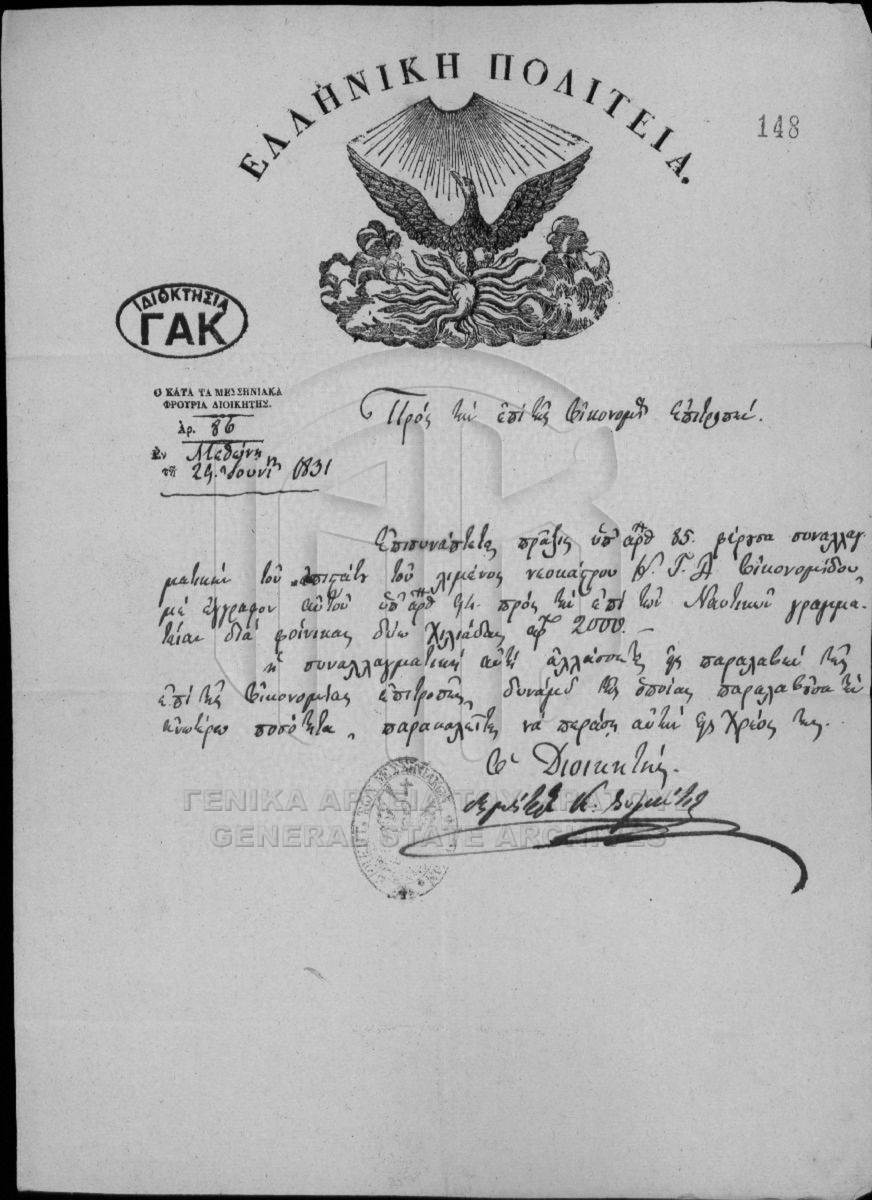 ΕΛΛΗΝΙΚΗ ΠΟΛΙΤΕΙΑ.
148
ΙΔΙΟΚΤΗΣΙΑ
ΓΑΚ
Ο ΚΑΤΑ ΤΑ ΜΕΣΣΗΝΙΑΚΑ
ΦΡΟΥΡΙΑ ΔΙΟΙΚΗΤΗΣ.
Ἀρ. 86
Ἐν Μεθώνῃ
τῇ 24 Ἰουνίȣ 1831
Πρὸς τὴν ἐπὶ τῆς Οἰκονομ. Ἐπιτροπήν.
Ἐπισυνάπτεται πρᾶξις ὑπ' ἀρθ 85. φέρουσα συναλλαγ-
ματικὴν τοῦ τοῦ λιμένος νεοκάστρου Κ. Γ. Α Οἰκονομίδου
μὲ ἔγγραφον αὐτοῦ ὑπ' ἀρθ 94. πρὸς τὴν ἐπὶ τῶν Ναυτικῶν γραμμα-
τείαν διὰ φοίνικας δύω χιλιάδας ἀρ 2000. –
ἡ συναλλαγματικὴ αὐτὴ παραλαβὴν τῆς
ἐπὶ τῆς Οἰκονομίας ἐπιτροπῆς, δυνάμει τῆς ὁποίας παραλαβοῦσα τὴν
ἀνωτέρω ποσότητα, παρακαλεῖται νὰ περάσῃ αὐτὴν εἰς χρέος της.
Ὁ Διοικητής.
ΓΕΝΙΚΑ ΑΡΧΕΙΑ ΤΟΥ ΚΡΑΤΟΥΣ
GENERAL STATE ARCHIVES